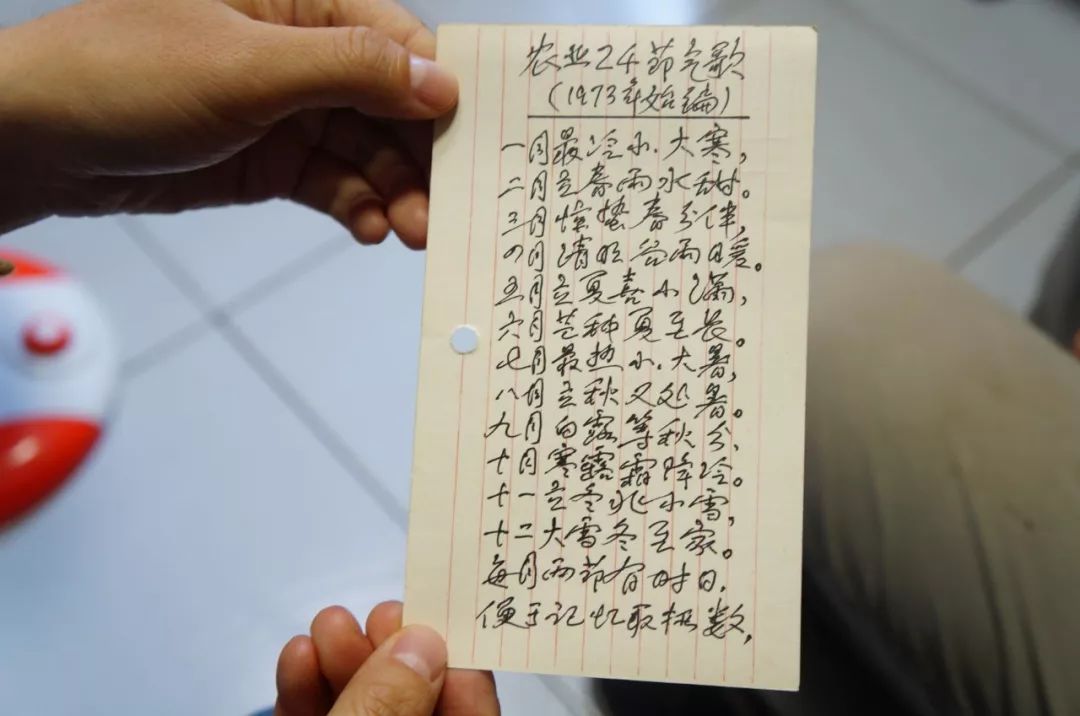 农业24节气歌
(1973年始编)
一月最冷小.大寒，
二月立春雨水甜。
三月惊蛰春分伴，
四月清明谷雨暖。
五月立夏喜小满，
六月芒种夏至长。
七月最热小.大暑，
八月立秋又处暑。
九月白露等秋分，
十月寒露霜降冷。
十一立冬兆小雪，
十二大雪冬至寂。
每月两节有时日，
便于记忆取概数，